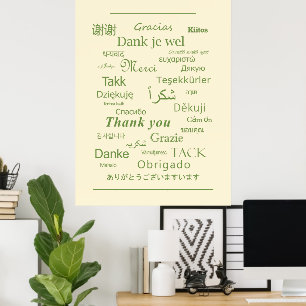 谢谢 Gracias Kiitos
Dank je wel
ευχαριστώ
Merci Дякую
Takk Teşekkürler
Dziękuję شكراً
Спасибо Děkuji
Thank you Cảm ơn
감사합니다 Grazie
Danke TACK
Obrigado
ありがとうございますいます